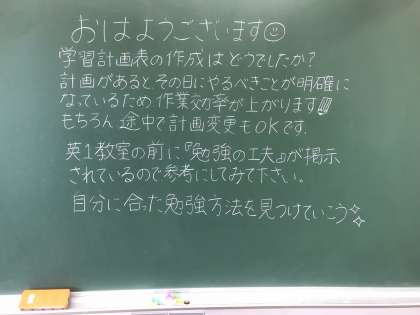 おはようございます☺
学習計画表の作成はどうでしたか?
計画があると、その日にやるべきことが明確に
なっているため作業効率が上がります!!!
もちろん途中で計画変更もOKです.
英1教室の前に『勉強の工夫』が掲示
されているので参考にしてみて下さい。
自分に合った勉強方法を見つけていこう✧✧